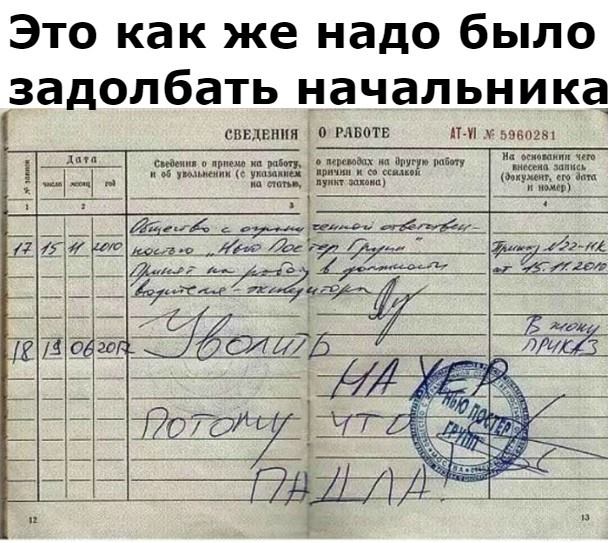 Это как же надо было
задолбать начальника
СВЕДЕНИЯ О РАБОТЕ АТ-VI № 5960281
№ записи
Дата
число месяц год
Сведения о приеме на работу, о переводах на другую работу
и об увольнении (с указанием причин и со ссылкой
на статью, пункт закона)
На основании чего
внесена запись
(документ, его дата
и номер)
1 2 3 4
Общество с ограниченной ответствен-
17 15 11 2010 ностью „Нью Постер Групп" Приказ №22-НК
Принят на работу в должности от 15.11.2010
водителя-экспедитора
18 19 06 2012 Уволить
В жопу
ПРИКАЗ
НАХЕР
ПОТОМУ ЧТО
ПАДЛА!
НЬЮ ПОСТЕР
ГРУПП
МОСКВА
12 13